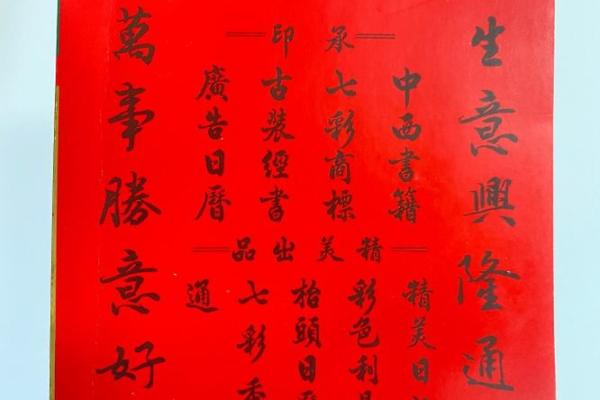 生意興隆通
承印
中西書籍
七彩商標
古裝經書
廣告日曆
精美出品
精美日
彩色利
枱頭日
七彩
通
萬事勝意好